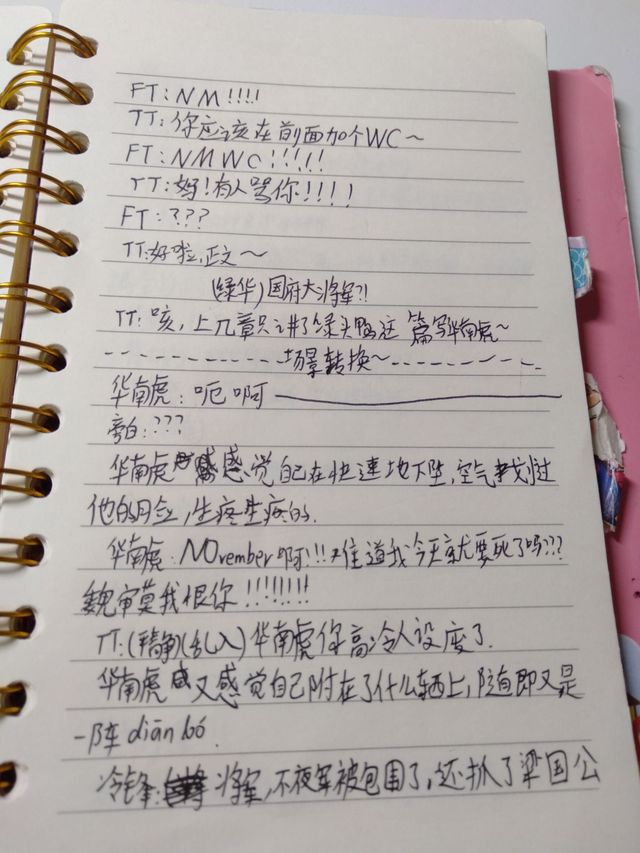 FT:NM!!!!
TT:你应该在前面加个WC~
FT:NMWC!!!!!
TT:好!有人骂你!!!!
FT:???
TT:好啦,正文~
(绿华)国府大将军?!
TT:咳,上几章只讲了绿头鸭这篇写华南虎~
场景转换~
华南虎:呃啊
旁白:???
华南虎感觉自己在快速地下坠,空气划过
他的脸,生疼生疼的.
华南虎:NOvember啊!!!难道我今天就要死了吗???
魏审莫我恨你!!!!!!!!
TT:(精静)(乱入)华南虎你高冷人设废了.
华南虎又感觉自己附在了什么东西上,随即又是
一阵diān bó.
冷锋:将军,不夜军被包围了,还抓了梁国公